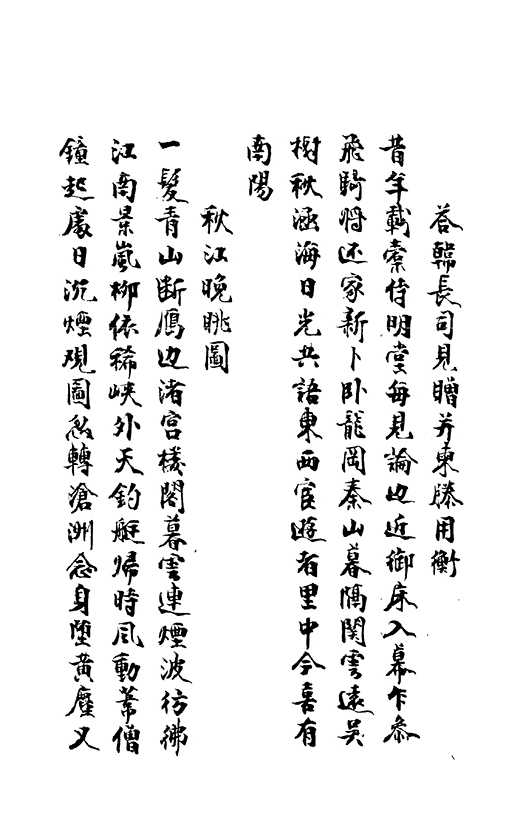 答韓長司見贈并柬滕用衡
昔年載橐侍明堂每見論邊近御床入幕乍參
飛騎將還家新卜卧龍岡秦山暮隔関雲遠吴
樹秋涵海日光共語東西宦遊者里中今喜有
南陽
秋江晚眺圖
一髮青山斷鴈邊渚宮樓閣暮雲連煙波彷彿
江南景嵐柳依稀峽外天釣艇歸時風動葦僧
鐘起處日沉煙觀圖忽轉滄洲念身墮黄塵又